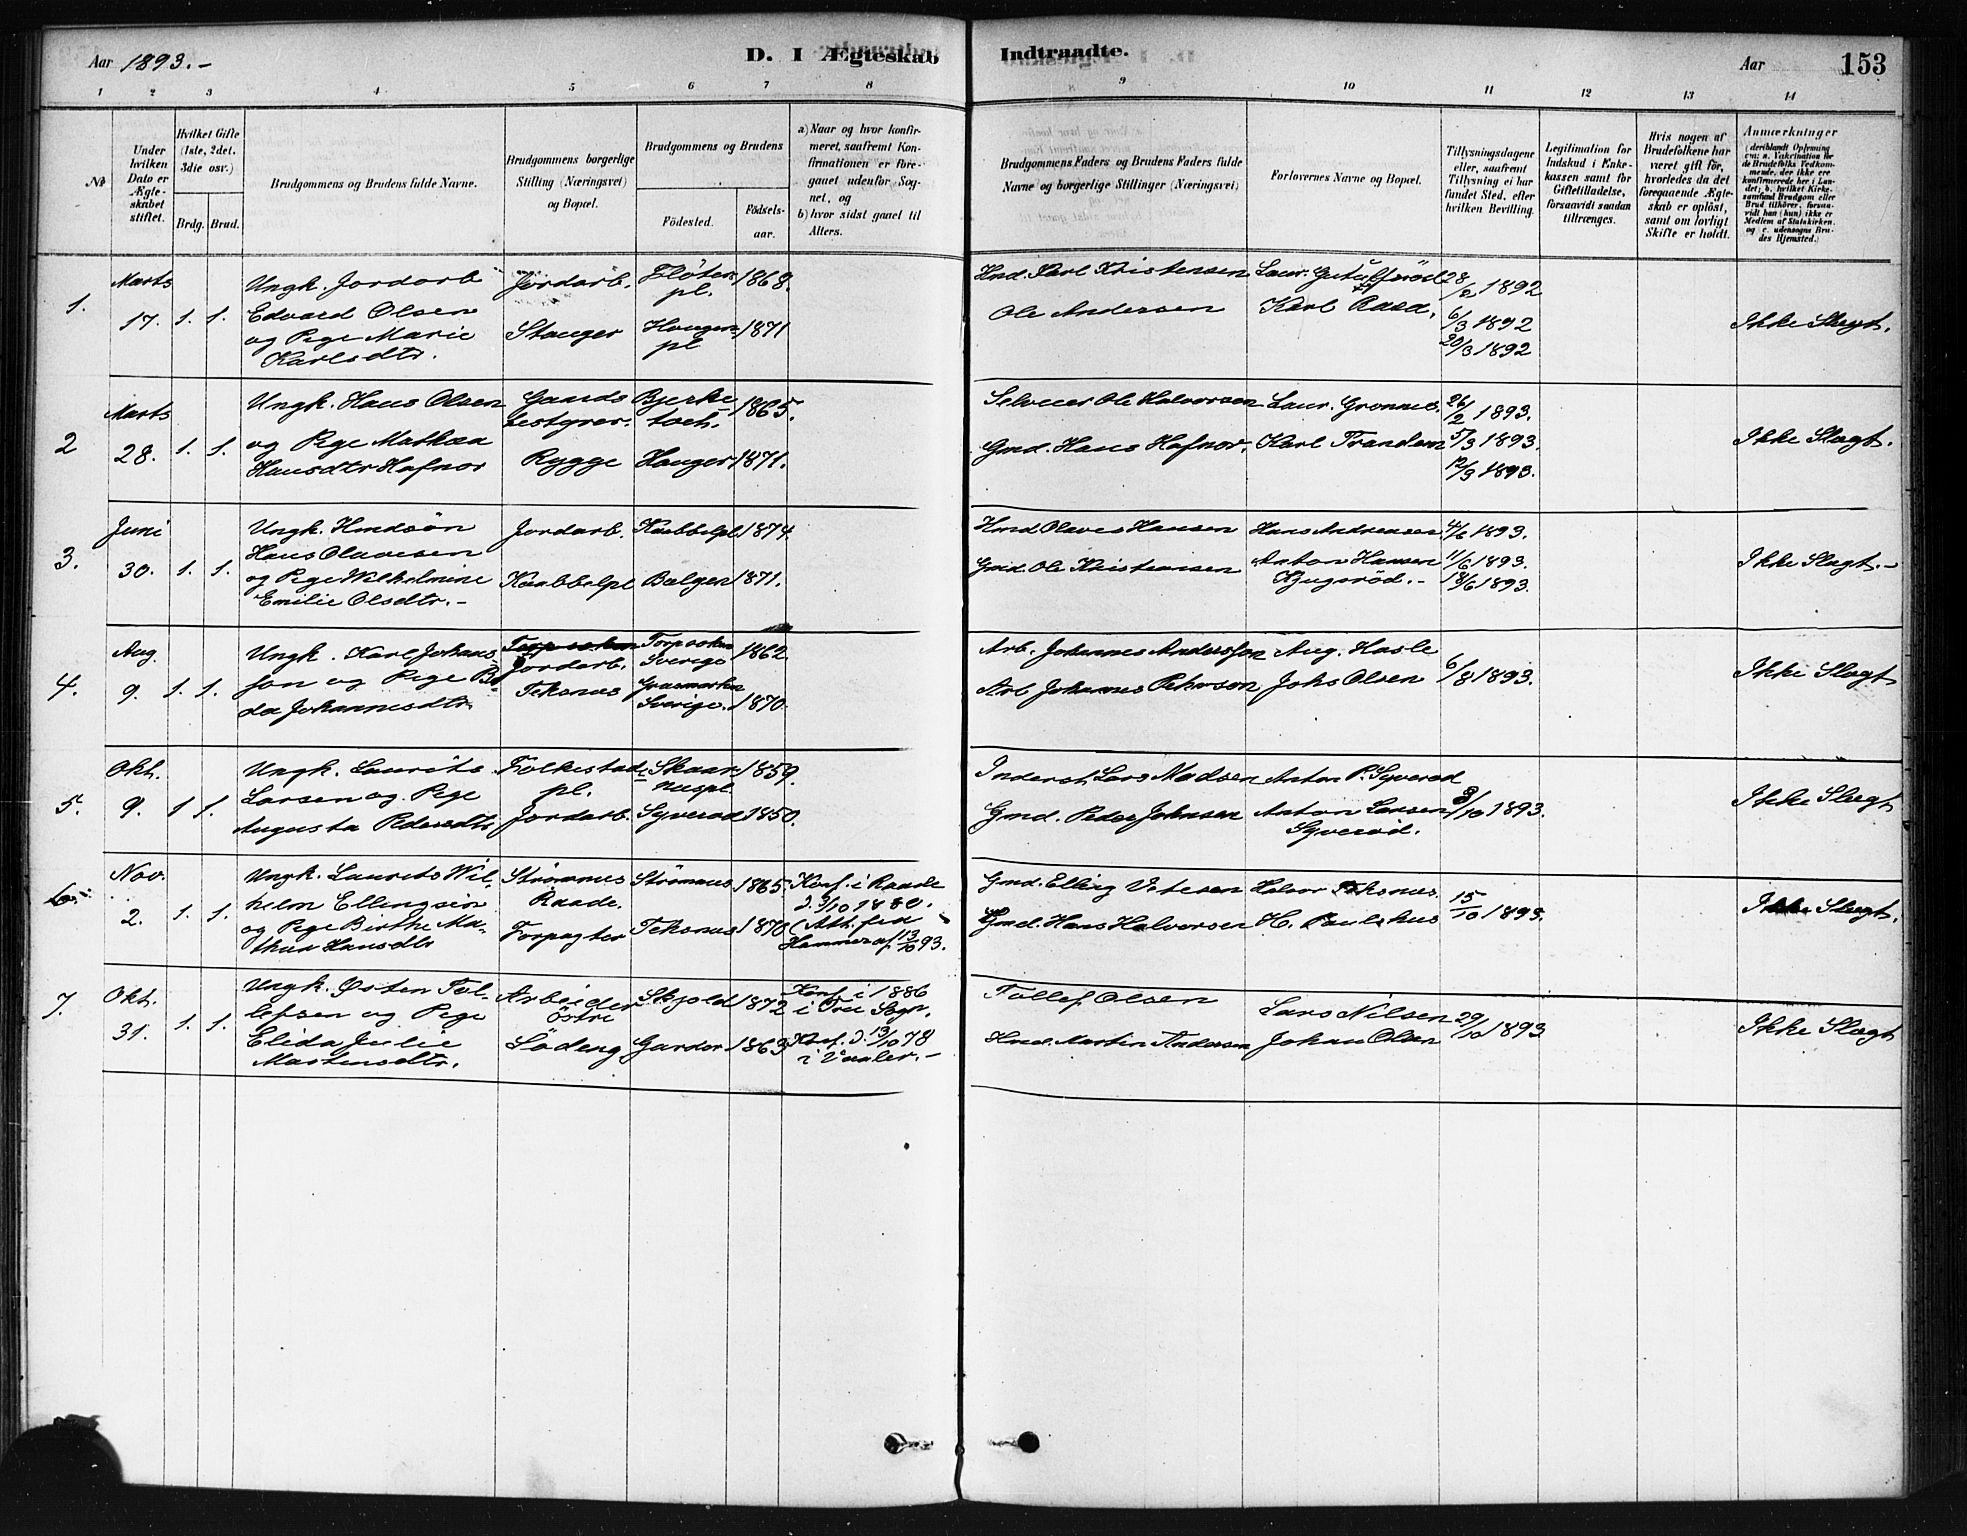 Aar 1893.-
D. I Ægteskab
Indtraadte.
Aar
153
1 2 3 4 5 6 7 8 9 10 11 12 13 14
No
Under hvilken Dato er Ægteskabet stiftet.
Hvilket Gifte (1ste, 2det, 3die osv.)
Brdg. Brud.
Brudgommens og Brudens fulde Navne.
Brudgommens borgerlige Stilling (Næringsvei) og Bopæl.
Brudgommens og Brudens
Födested.
Födselsaar.
a) Naar og hvor konfirmeret, saafremt Konfirmationen er foregaaet udenfor Sognet, og
b) hvor sidst gaaet til Alters.
Brudgommens Faders og Brudens Faders fulde Navne og borgerlige Stillinger (Næringsvei)
Forlovernes Navne og Bopæl.
Tillysningsdagene eller, saafremt Tillysning ei har fundet Sted, efter hvilken Bevilling.
Legitimation for Indskud i Enkekassen samt for Giftetilladelse, forsaavidt saadan tiltrænges.
Hvis nogen af Brudefolkene har været gift för, hvorledes da det foregaaende Ægteskab er oplöst, samt om lovligt Skifte er holdt.
Anmærkninger
1.
Marts
17. 1. 1.
Ungk. Jordarb
Edvard Olsen
og Pige Marie
Karlsdtr.
Jordarb.
Stanger
pl. 1868.
pl 1871
Hmd. Karl Kristensen
Ole Andersen
Karl Raad.
28/2 1892
6/3 1892
20/3 1892
Ikke Slægt.
2
Marts
28. 1. 1.
Ungk. Hans Olsen
og Pige Mathea
Hansdtr Hafnor
Gaardsbestyrer.
Rygge
1865.
Hauger 1871.
Selveier Ole Halvorsen
Gmd. Hans Hafnor.
Karl Frandsen
26/2 1893.
5/3 1893.
12/3 1893.
Ikke Slægt.
3.
Juni
30. 1. 1.
Ungk. Hmdsön
Hans Olavesen
og Pige Wilhelmine
Emilie Olsdtr.-
Jordarb.
Kaabbelpl
Kaabbelpl 1874.
Balgen 1871.
Hmd Olaves Hansen
Gmd. Ole Kristiansen
Hans Andreasen
Anton Hansen
4/6 1893.
11/6 1893.
18/6 1893.
Ikke Slægt.-
4.
Aug.
9. 1. 1.
Ungk. Karl Johans-
son og Pige
da Johannesdtr.
Jordarb.
Teksnes
Torpsoken
Sverige 1862
Sverige. 1870.
Arb. Johannes Andersson
Arb Johannes Pehrson
Aug. Hasle
Johs Olsen
6/8 1893.
Ikke Slægt
5.
Okt.
9. 1 1.
Ungk. Laurits
Larsen og Pige
Augusta Pedersdtr
Folkestad
pl.
Jordarb.
Skaar-
nespl. 1859.
Syverød 1850.
Inderst. Lars Madsen
Gmd. Peder Johnsen
Anton P. Syverød
Anton Larsen
Syverød.
/10 1893.
Ikke Slægt
6.
Nov.
2. 1. 1.
Ungk. Laurits Wil-
helm Ellingsen
og Pige Birthe Ma-
thea Hansdtr
Strömnes
Raade.
Forpagter
Strömnes 1865.
Teksnes 1870
Konf. i Raade
d. 3/10 1880.
(Att. fra
Hammer af 13/10 93.
Gmd. Elling Petersen
Gmd. Hans Halvorsen
Halvor Teksnes.
H. Paulshus
15/10 1893.
Ikke Slægt.
7.
Okt.
31. 1. 1.
Ungk. Østen Tol-
lefsen og Pige
Elida Julie
Martinsdtr.
Arbeider
Östre
Södeng
Skjold 1872
Garder 1863
Konf. i 1886
i Sogn.
Konf. d. 13/10 78
i Vaaler.-
Tollef Olsen
Hmd. Martin Andersen
Lars Nilsen
Johan Olsen
29/10 1893
Ikke Slægt